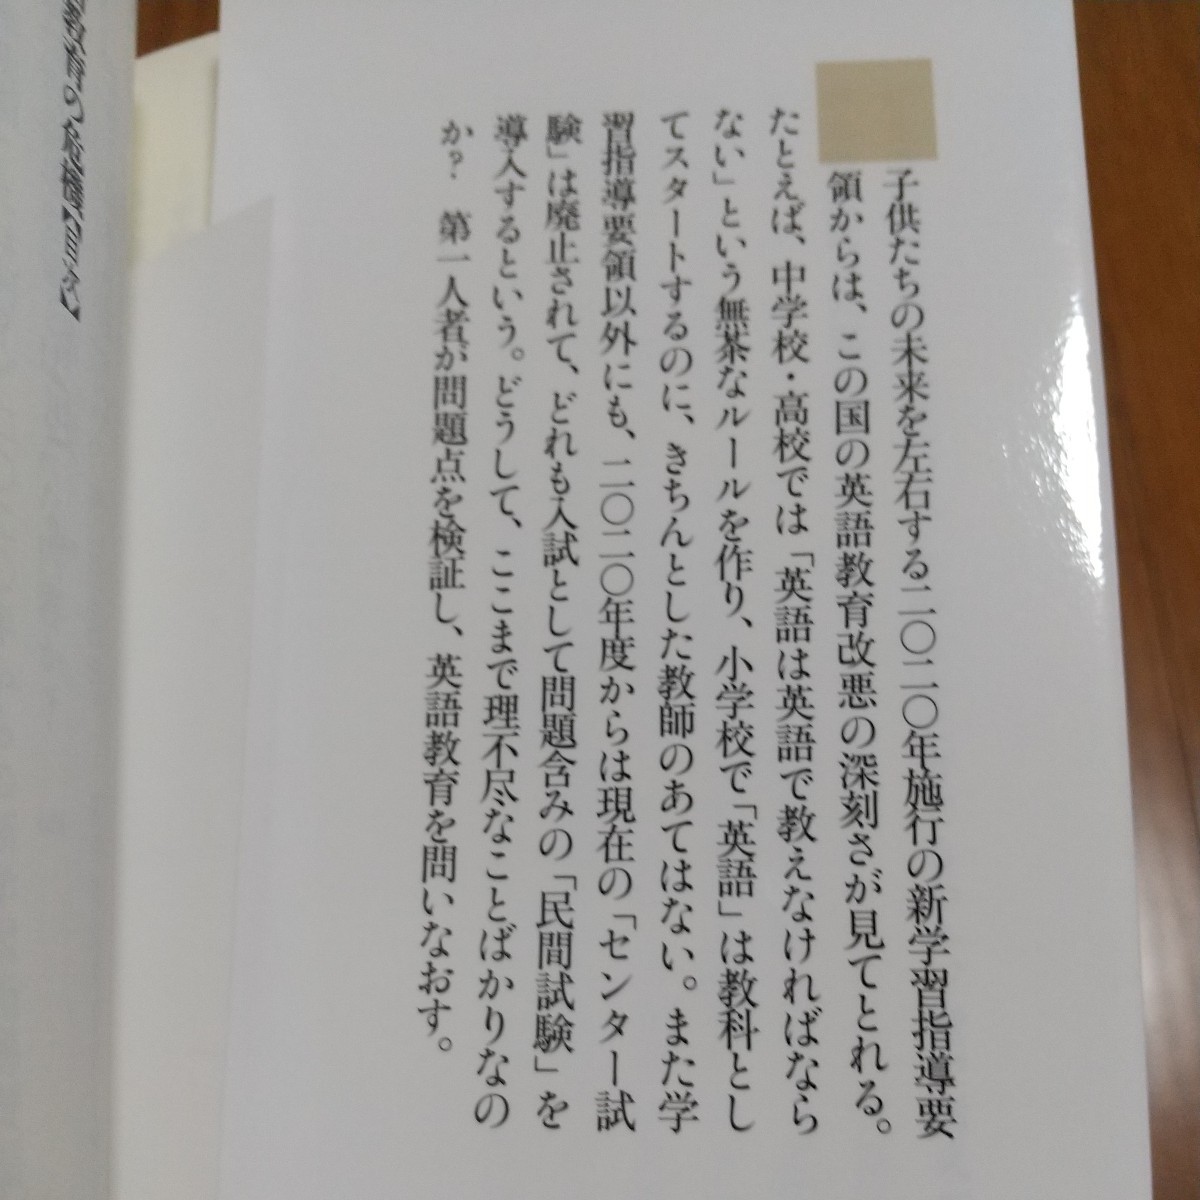 子供たちの未来を左右する二〇二〇年施行の新学習指導要
領からは、この国の英語教育改悪の深刻さが見てとれる。
たとえば、中学校・高校では「英語は英語で教えなければなら
ない」という無茶なルールを作り、小学校で「英語」は教科とし
てスタートするのに、きちんとした教師のあてはない。また学
習指導要領以外にも、二〇二〇年度からは現在の「センター試
験」は廃止されて、どれも入試として問題含みの「民間試験」を
導入するという。どうして、ここまで理不尽なことばかりなの
か? 第一人者が問題点を検証し、英語教育を問いなおす。
教育の危機【目次】